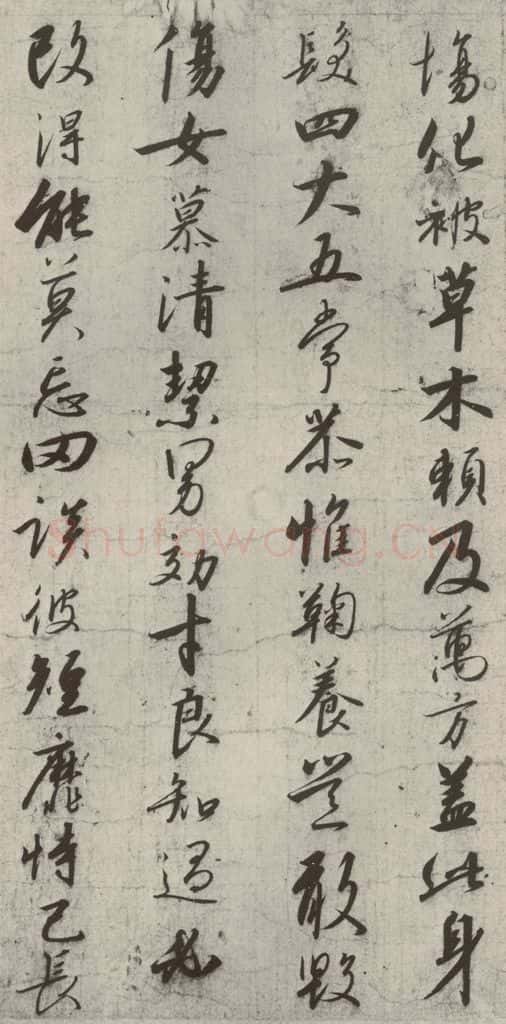 場化被草木賴及萬方蓋此身
髮四大五常恭惟鞠養豈敢毀
傷女慕清絜男効才良知過必
改得能莫忘罔談彼短靡恃己長
Shufawang.cn